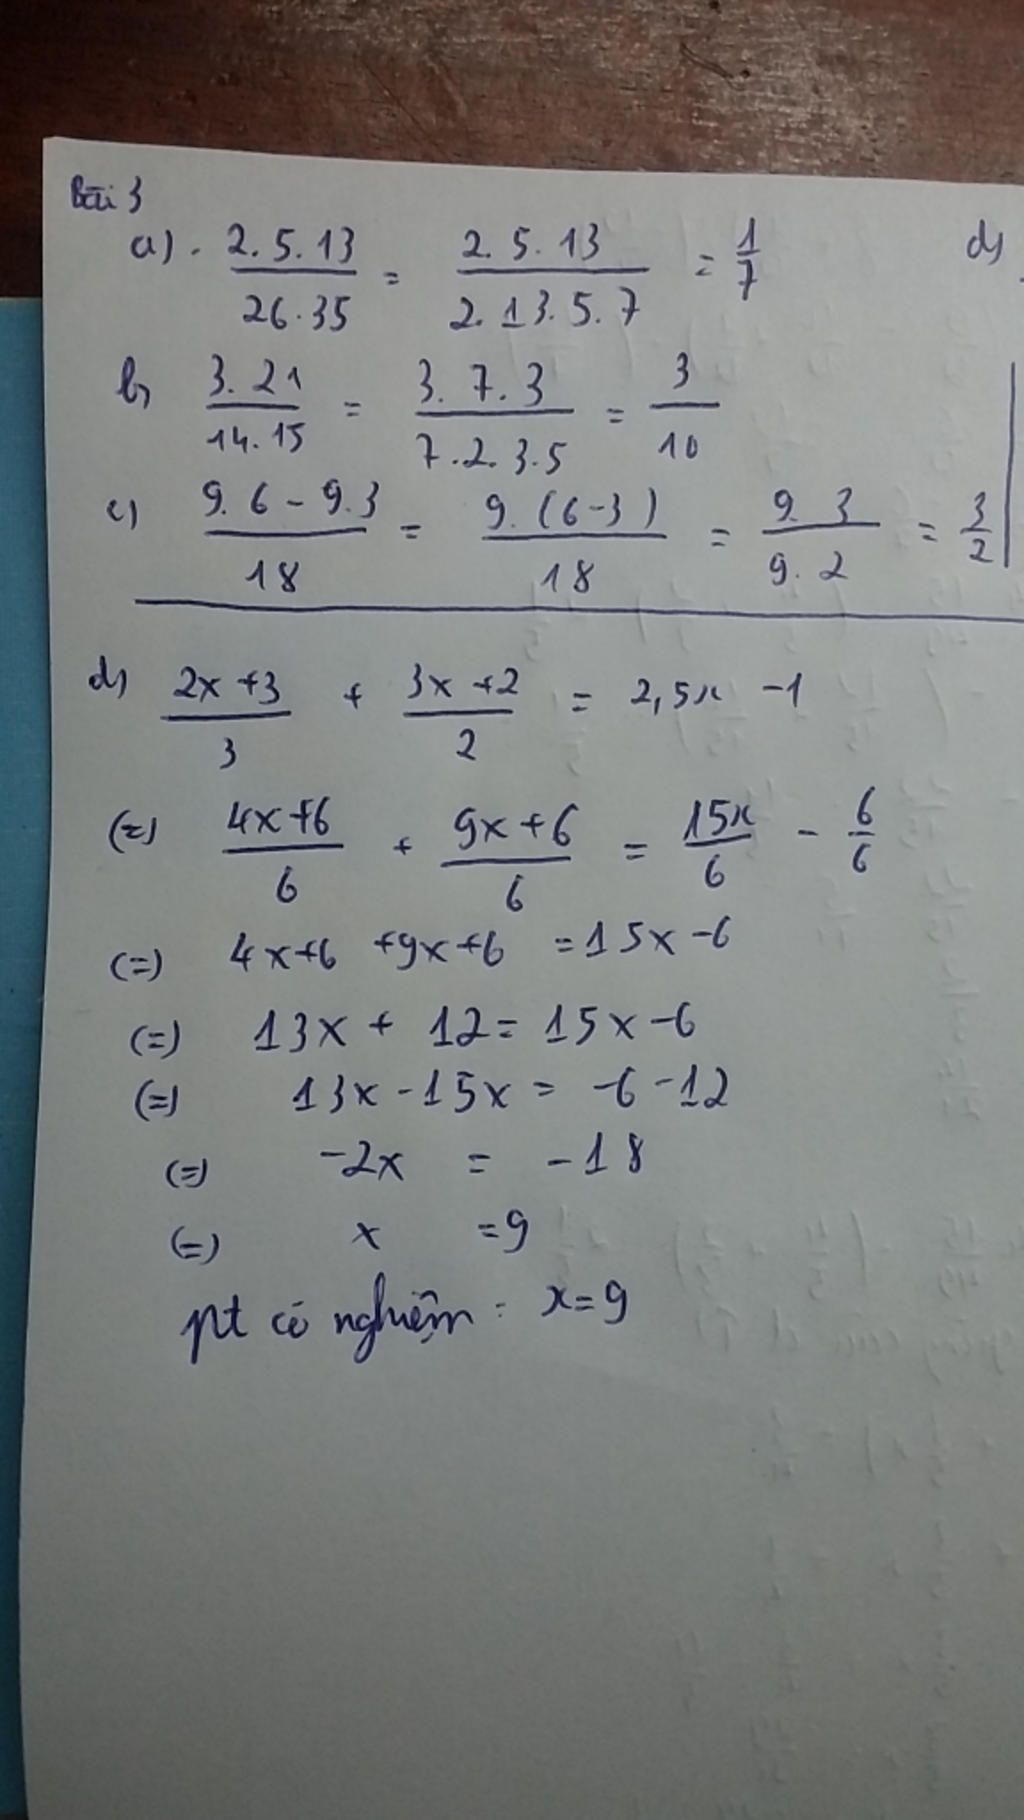 Bài 3
a) . 2.5.13 / 26.35 = 2.5.13 / 2.13.5.7 = 1/7 d)
b) 3.21 / 14.15 = 3.7.3 / 7.2.3.5 = 3/10
c) 9.6 - 9.3 / 18 = 9.(6-3) / 18 = 9.3 / 9.2 = 3/2
d) 2x+3 / 3 + 3x+2 / 2 = 2,5x - 1
(=) 4x+6 / 6 + 9x+6 / 6 = 15x / 6 - 6/6
(=) 4x+6 +9x+6 = 15x-6
(=) 13x + 12 = 15x-6
(=) 13x-15x = -6-12
(=) -2x = -18
(=) x = 9
pt có nghiệm: x=9